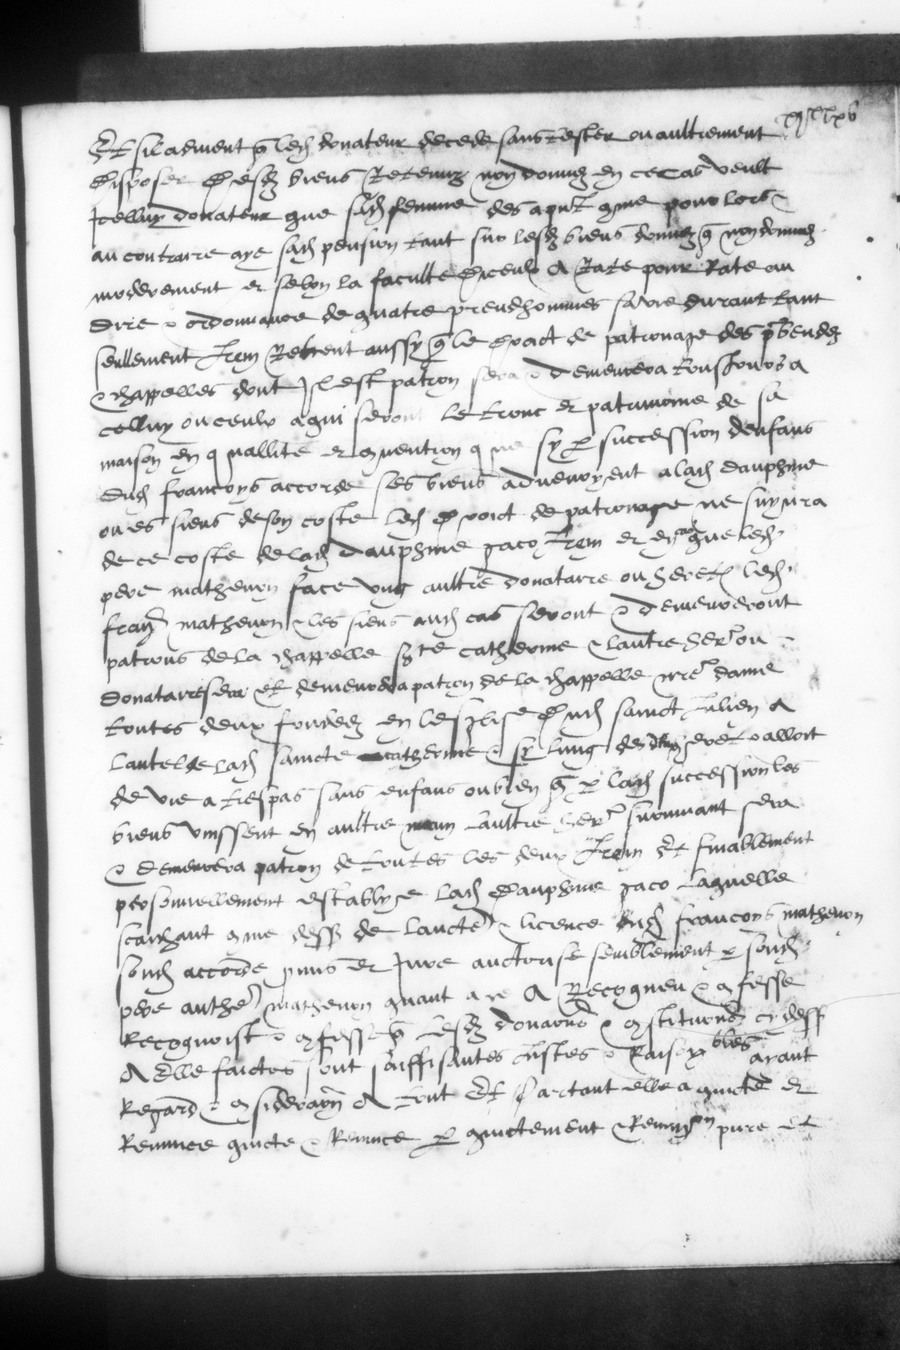 Et sil advient q led donateur decede sans tester ou aultrement
disposer desd biens retenuz non donnez en ce cas veult
Icelluy donateur que sad femme des apnt come pour lors &
au contraire aye sad pension tant sur lesd biens donnez q non donnez
modderement et selon la faculte diceulx A Rate pour Rate au
dire & ordonnance de quatre preudhommes sa vie durant tant
seullement Item Retient aussy q le droict de patronage des pbendes
& chappelles dont Il est patron sera & demeurera tousjours a
celluy ou ceulx a qui seront le tronc et patrimoine de sa
maison en quallite et convention que sy p succession denfans
dud francoys accorde ses biens advenoyent a lad dauphine
ou es siens de son coste led droict de patronage ne suyvra
de ce coste de lad dauphine jaco Item et en que led
pere mathevon face ung aultre donataire ou heret led
franç mathevon & les siens aud cas seront & demeureront
patrons de la chappelle scte catherine & laultre her ou
donataire sera et demeurera patron de la chappelle nre dame
toutes deux fondees en lesglise dud sainct Julien A
lautel de lad saincte catherine & sy lung des heret alloit
de vie a trespas sans enfans ou bien q p lad succession les
biens vinssent en aultre main laultre her survivant sera
& demeurera patron de toutes les deux Item Et finablement
personnellement establye lad dauphine jaco laquelle
saichant come dess de laucte & licence dud francoys mathevon
sond accorde pnns et Jure auctorise semblement p sond
pere anthe mathevon quant a ce A Recogneu & confesse
Recognoist & confesse q lesd donaons & constitutions cy dess
A Elle faictes sont souffisantes Justes & Raisonables ayant
Regard & consideraon A tout Et partant elle a quicte et
Renunce quicte & Renunce p quictement & Renun on pure et